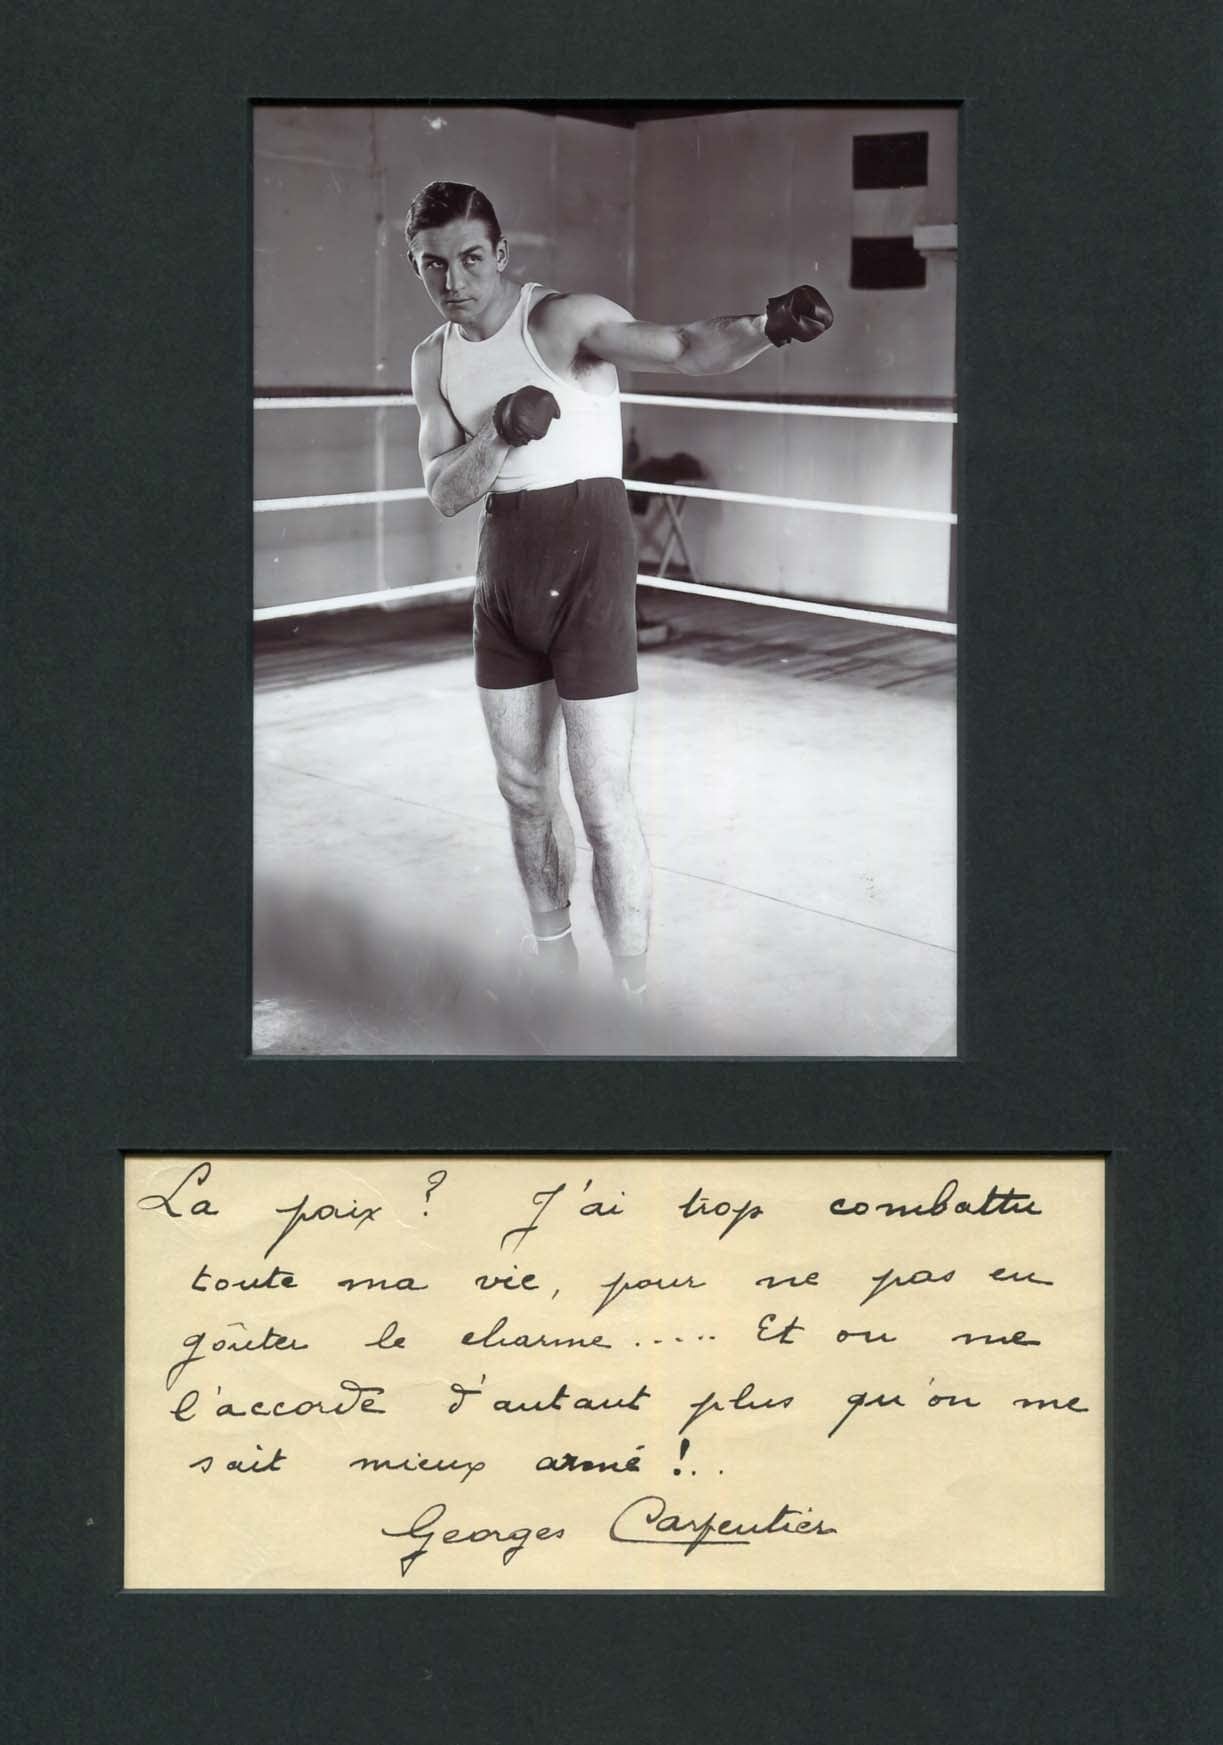 La paix ? J'ai trop combattu
toute ma vie, pour ne pas en
goûter le charme..... Et on me
l'accorde d'autant plus qu'on me
sait mieux armé !..
Georges Carpentier